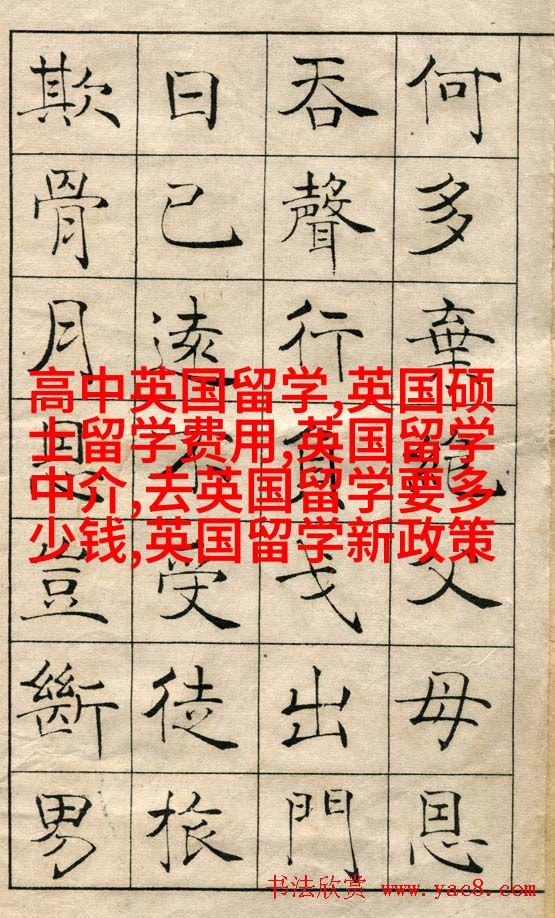 何多棄絕父母恩
吞聲行負戈出門
日已遠不受徒旅
欺骨月恩豈斷男
高中英国留学,英国硕
士留学费用,英国留学
中介,去英国留学要多
少钱,英国留学新政策
书法欣赏 www.yac8.com